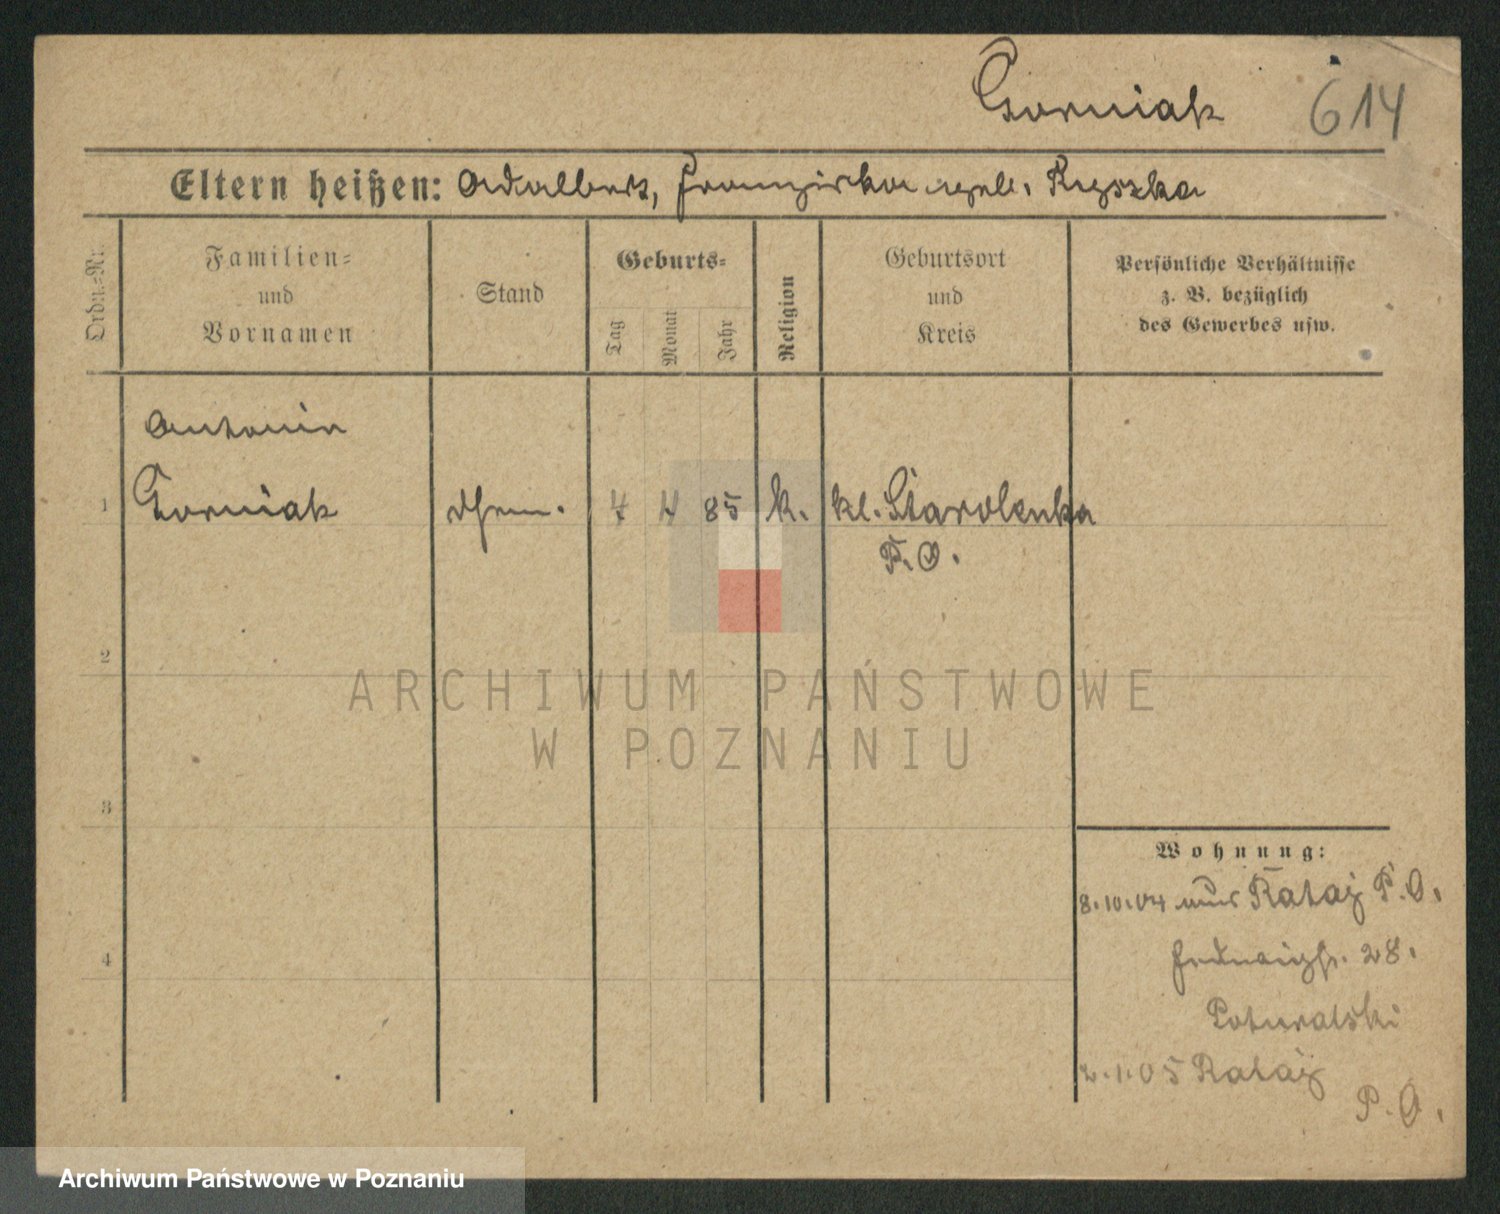 Gorniak 614
Eltern heißen: Adalbert, Franziska geb. Ryszka
Ordn.=Nr.
Familien=
und
Vornamen
Stand
Geburts=
Tag
Monat
Jahr
Religion
Geburtsort
und
Kreis
Persönliche Verhältnisse
z. B. bezüglich
des Gewerbes usw.
Antonin
1 Gorniak 85 k. kl. Starolenka
P. O.
2
3
4
Wohnung:
8.10.04 aus Rataj P. O.
28.
Poturalski
2.1.05 Rataj
P. O.
ARCHIWUM PAŃSTWOWE
W POZNANIU
Archiwum Państwowe w Poznaniu